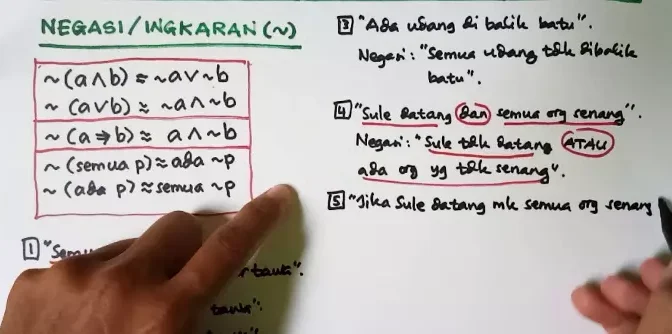 NEGASI/INGKARAN (~)
~(a∧b) ≈ ~a∨~b
~(a∨b) ≈ ~a∧~b
~(a⇒b) ≈ a∧~b
~(semua p) ≈ ada ~p
~(ada p) ≈ semua ~p
1 "Semu
tawa".
tawa".
3 "Ada udang di balik batu".
Negasi: "Semua udang tdk dibalik
batu".
4 "Sule datang dan semua org senang".
Negasi: "Sule tdk datang ATAU
ada org yg tdk senang".
5 "Jika Sule datang mk semua org senang